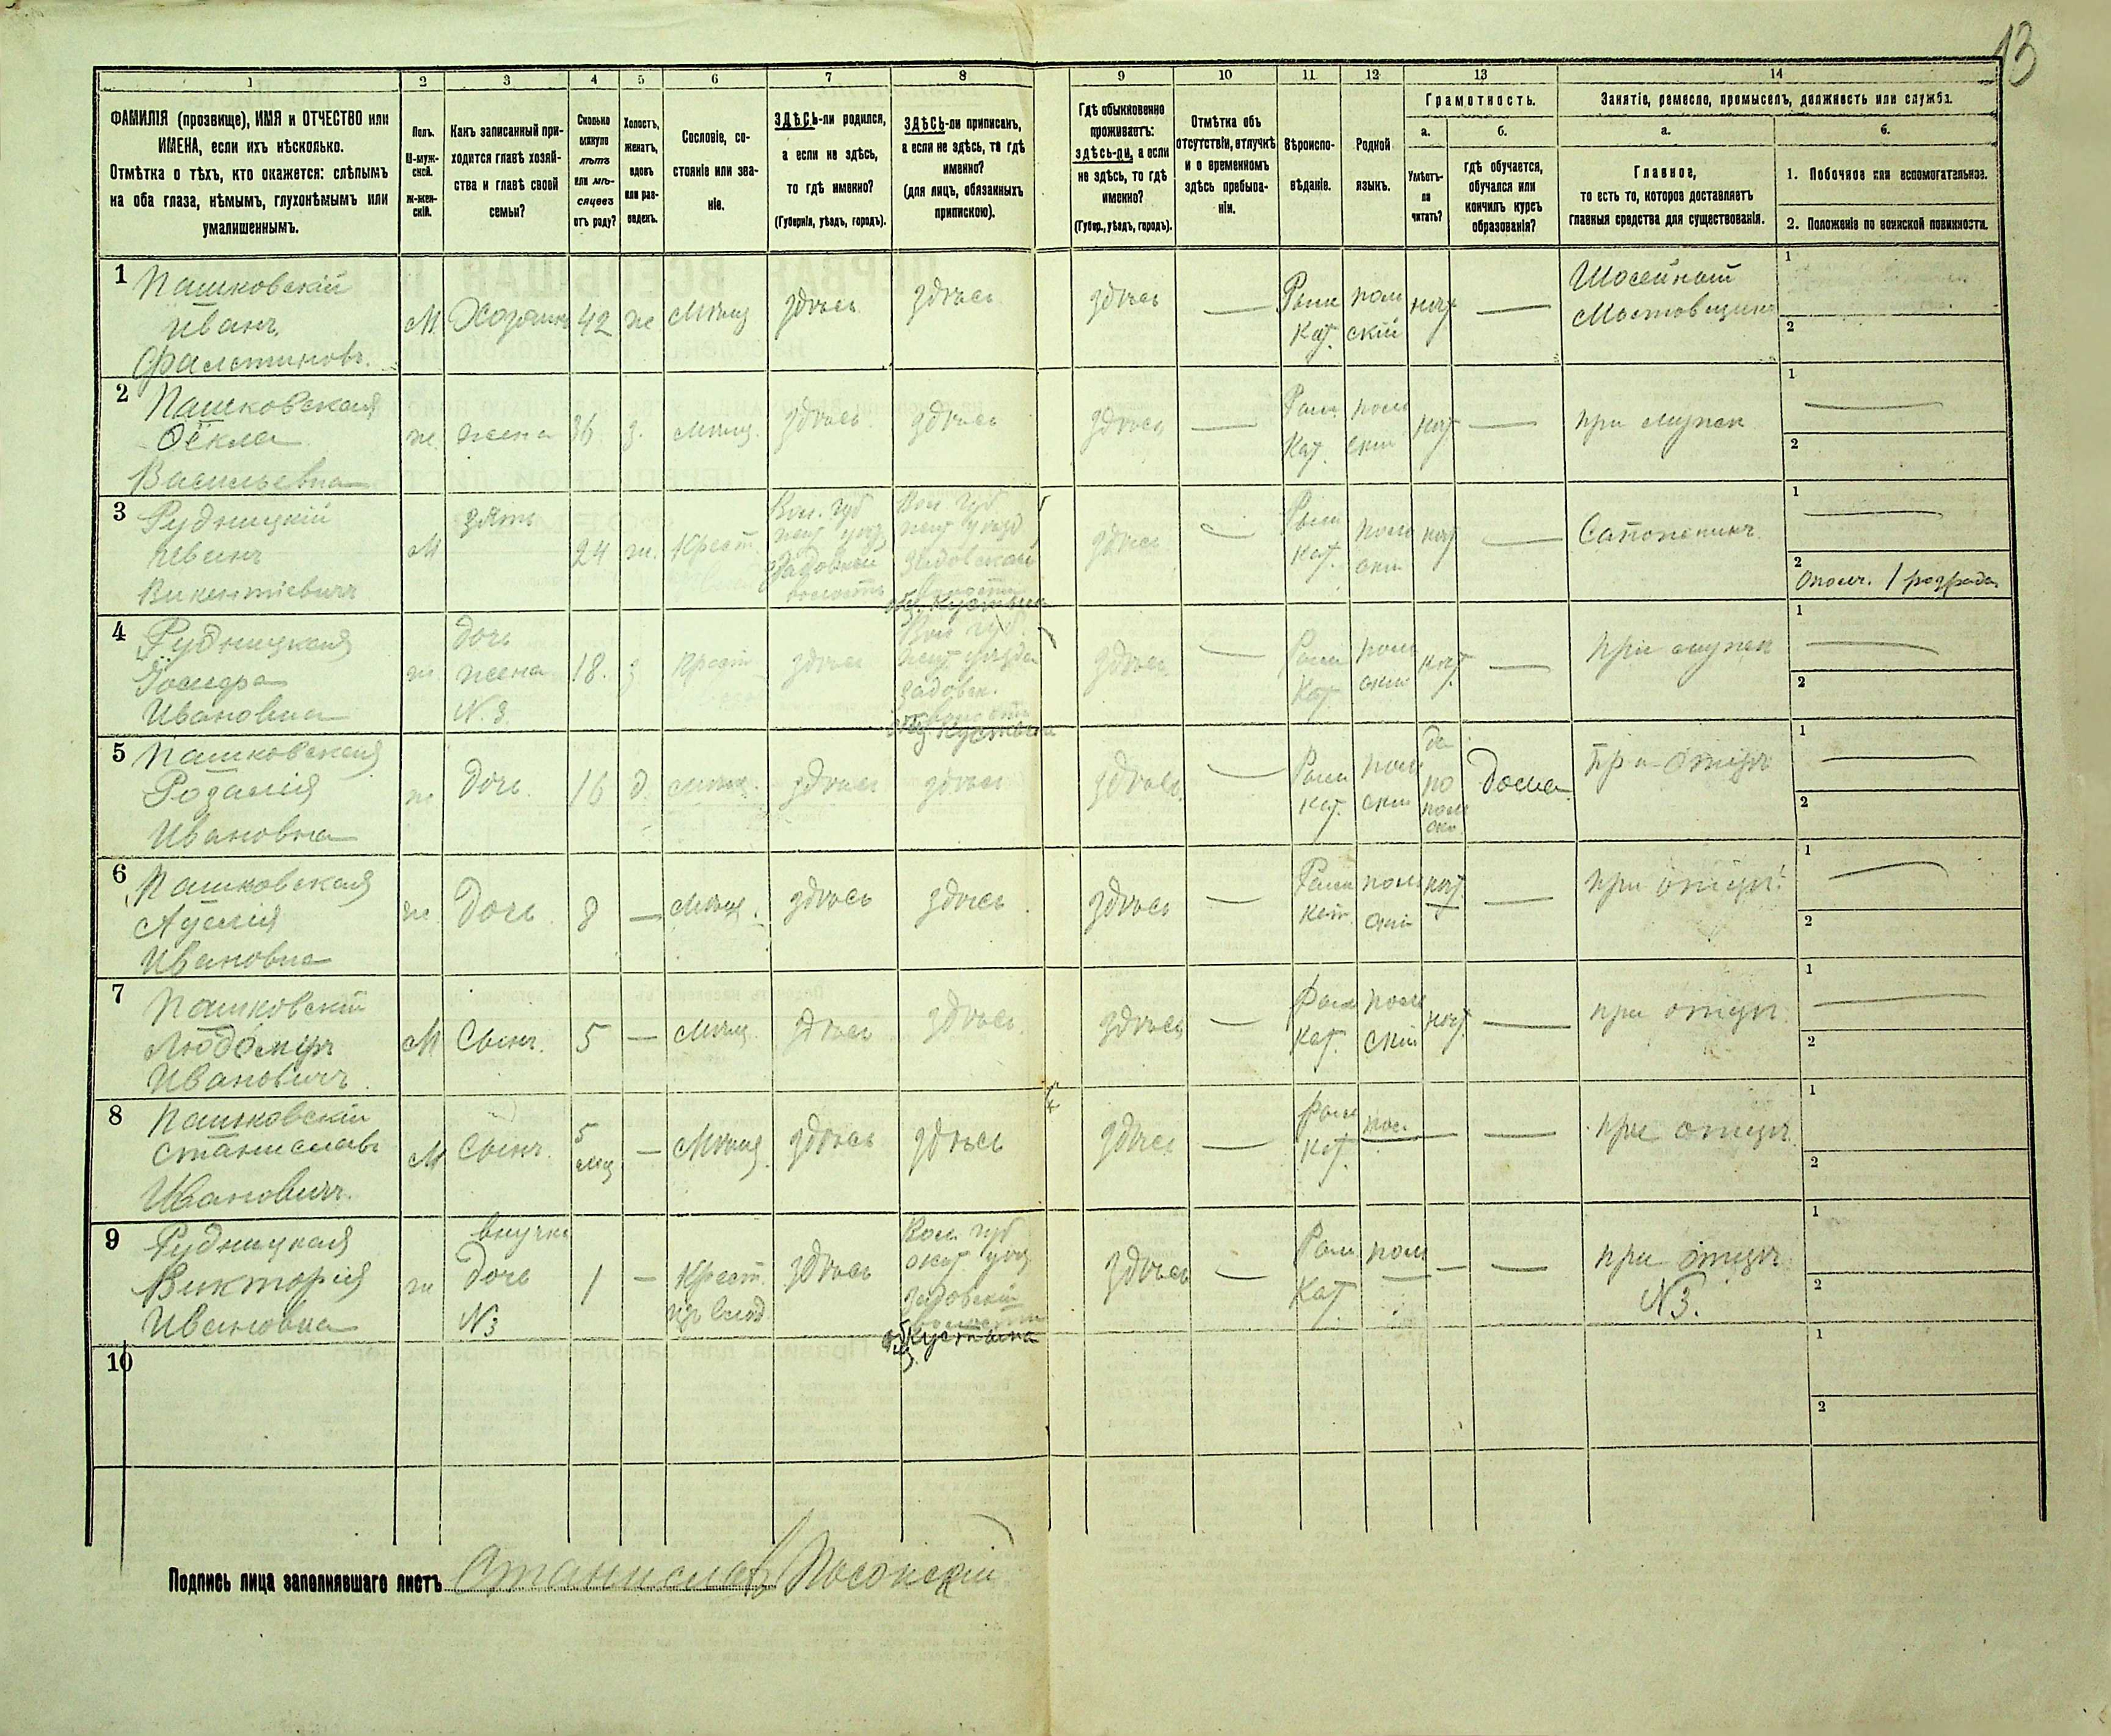 13
1 2 3 4 5 6 7 8 9 10 11 12 13 14
ФАМИЛІЯ (прозвище), ИМЯ и ОТЧЕСТВО или
ИМЕНА, если ихъ нѣсколько.
Отмѣтка о тѣхъ, кто окажется: слѣпымъ
на оба глаза, нѣмымъ, глухонѣмымъ или
умалишеннымъ.
Полъ.
М-муж-
ской.
Ж-жен-
скій.
Какъ записанный при-
ходится главѣ хозяй-
ства и главѣ своей
семьи?
Сколько
минуло
лѣтъ
или мѣ-
сяцевъ
отъ роду?
Холостъ,
женатъ,
вдовъ
или раз-
веденъ.
Сословіе, со-
стояніе или зва-
ніе.
ЗДѢСЬ-ли родился,
а если не здѣсь,
то гдѣ именно?
(Губернія, уѣздъ, городъ).
ЗДѢСЬ-ли приписанъ,
а если не здѣсь, то гдѣ
именно?
(для лицъ, обязанныхъ
припискою).
Гдѣ обыкновенно
проживаетъ:
здѣсь-ли, а если
не здѣсь, то гдѣ
именно?
(Губер., уѣздъ, городъ).
Отмѣтка объ
отсутствіи, отлучкѣ
и о временномъ
здѣсь пребыва-
ніи.
Вѣроиспо-
вѣданіе.
Родной
языкъ.
Грамотность.
а.
Умѣетъ-
ли
читать?
б.
гдѣ обучается,
обучался или
кончилъ курсъ
образованія?
Занятіе, ремесло, промыселъ, должность или служба.
а.
Главное,
то есть то, которое доставляетъ
главныя средства для существованія.
б.
1. Побочное или вспомогательное.
2. Положеніе по воинской повинности.
1
Пашковскій
Иванъ
М Хозяинъ 42 ж Мѣщ здѣсь здѣсь здѣсь — Рим Кат. поль скій нѣт —
Шосейный
Мостовщикъ
1
2
2
Пашковская
Ѳёкла
Васильевна
ж. жена 36 з. Мѣщ. здѣсь здѣсь здѣсь — Рим. Кат. поль скій нѣт — при мужѣ
1 —
2
3
Рудницкій
Иванъ
Викентіевичъ
М зять 24 ж. Крест.
Вол. губ
Вол. губ
здѣсь — Рим Кат. поль скій нѣт — Сапожникъ
1 —
2
Ополч. 1 розряда
4
Рудницкая
Ивановна
ж. дочь
жена
N. 3.
18. з Крест здѣсь
Вол губ.
здѣсь — Рим Кат. поль скій нѣт. — при мужѣ
1 —
2
5
Пашковская
Розалія
Ивановна
ж дочь. 16 д. Мѣщ. здѣсь здѣсь здѣсь — Рим Кат. поль скій
да
по
поль
ски
дома при отцѣ
1 —
2
6
Пашковская
Ивановна
ж. дочь. 8 — Мѣщ. здѣсь здѣсь здѣсь — Рим Кат поль скій нѣт — при отцѣ
1 —
2
7
Пашковскій
Ивановичъ
М Сынъ. 5 — Мѣщ. здѣсь здѣсь здѣсь — Рим Кат. поль скій нѣт. — при отцѣ
1 —
2
8
Пашковскій
Станиславъ
Ивановичъ.
М Сынъ. 5 мѣс — Мѣщ. здѣсь здѣсь здѣсь — Рим Кат. пол. — — при отцѣ
1
2
9
Рудницкая
Викторія
Ивановна
ж
внучка
дочь
N3
1 — Крест. здѣсь
Вол губ
общ
Кустына
здѣсь — Рим Кат. поль — — при отцѣ
N3.
1
2
10
1
2
Подпись лица заполнявшаго листъ Станиславъ